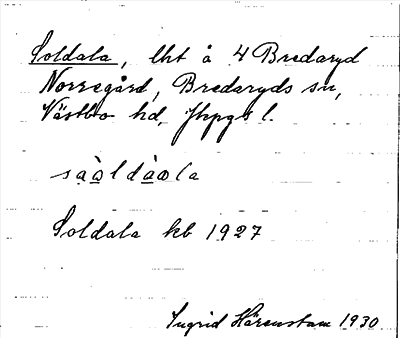 Soldala, lht å 4 Bredaryd
Norregård, Bredaryds sn,
Västbo hd, Jkpgs l.
sa̱ò̱ldà̱o̱la
Soldala kb 1927
Ingrid Härenstam 1930